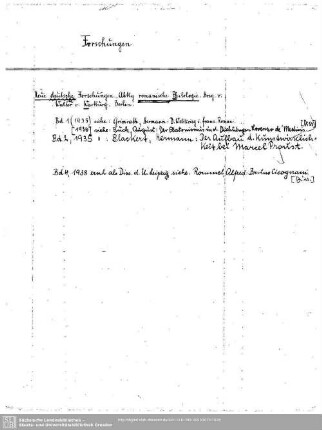 Forschungen
Neue deutsche Forschungen. Abtlg. romanische Philologie. Hrsg. v.
Berlin
Bd 1, 1933, siehe: Hermann
1936, siehe: Buck, August: Der Platonismus in d. Dichtungen Lorenzo de' Medicis. [Diss.]
Bd 2, 1935 s. : Blackert, Hermann: Der Aufbau d. Kunstwirklich-
keit bei Marcel Proust.
Bd 4, 1938 auch als Diss. d. U. Leipzig siehe. Rommel Alfred
[Diss.]
Sächsische Landesbibliothek -
Staats- und Universitätsbibliothek Dresden